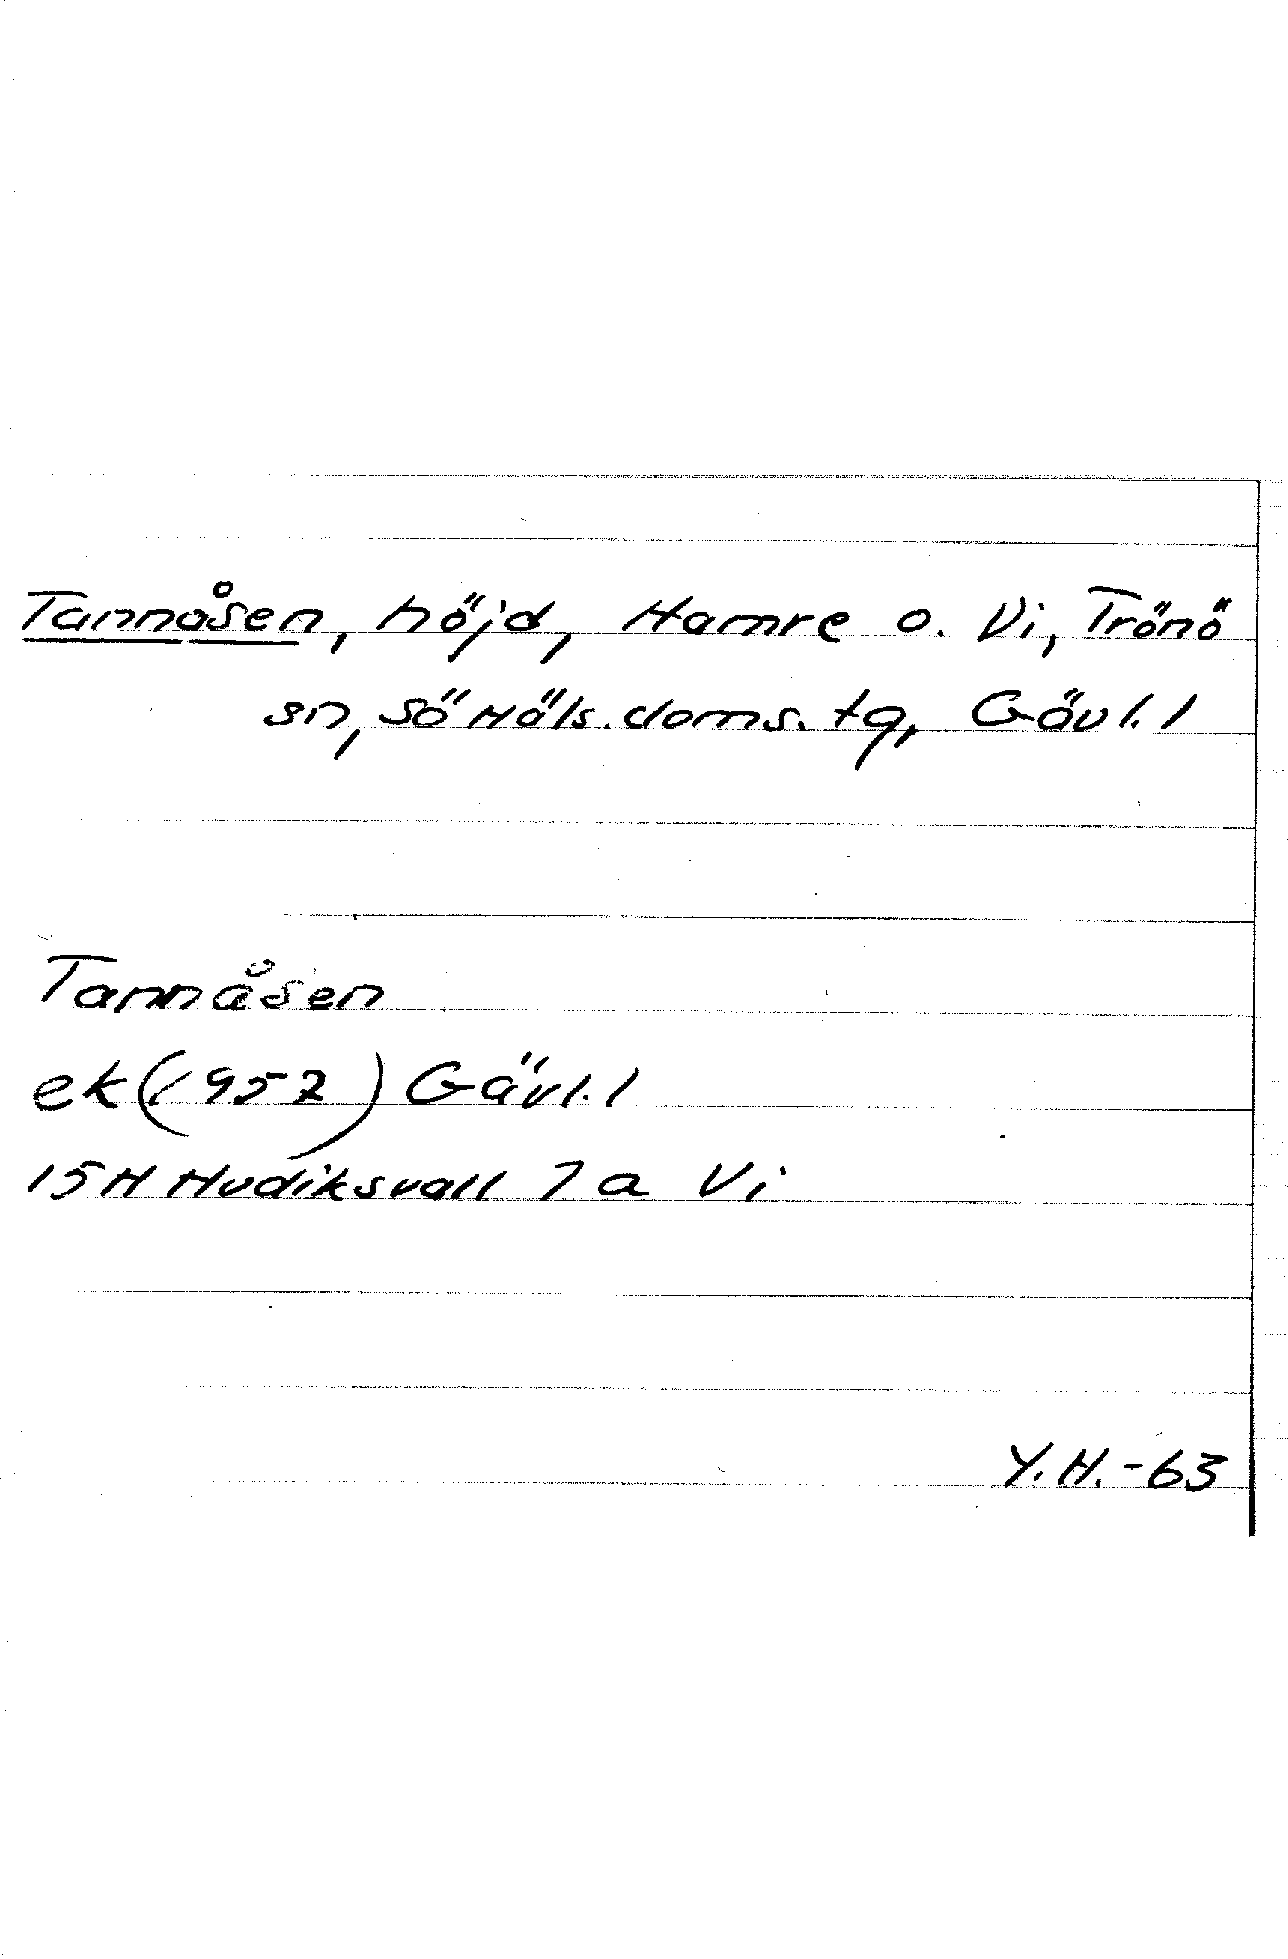 Tannåsen, höjd, Hamre o. Vi, Trönö
sn, Sö Häls. doms. tg, Gävl. l
Tannåsen
ek (1957) Gävl. l
15H Hudiksvall 7a Vi
Y.H.-63